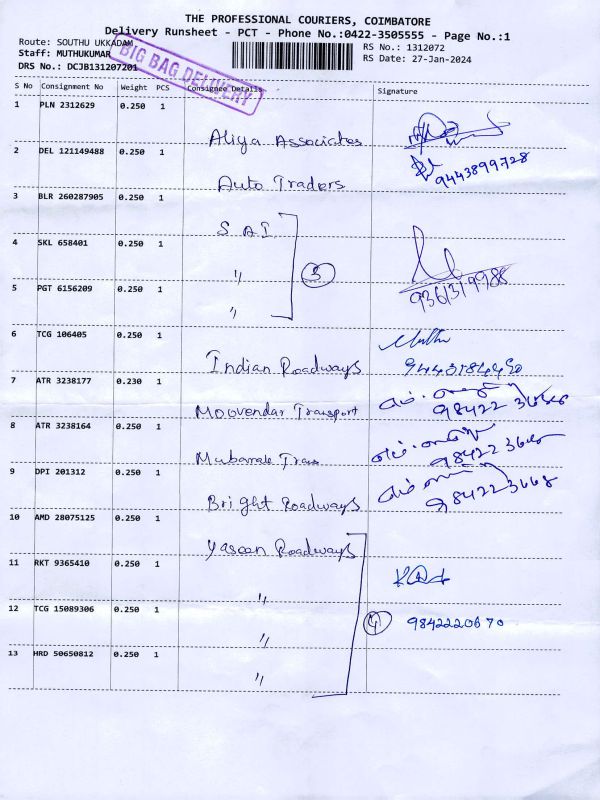 THE PROFESSIONAL COURIERS, COIMBATORE
Delivery Runsheet - PCT - Phone No.:0422-3505555 - Page No.:1
Route: SOUTHU UKKADAM
Staff: MUTHUKUMAR
DRS No.: DCJB131207201
RS No.: 1312072
RS Date: 27-Jan-2024
BIG BAG DELIVERY
S No Consignment No Weight PCS Consignee Details Signature
1 PLN 2312629 0.250 1 Aliya Associates
2 DEL 121149488 0.250 1 Auto Traders 9443899728
3 BLR 260287905 0.250 1 S A I
4 SKL 658401 0.250 1 " 3
5 PGT 6156209 0.250 1 "
6 TCG 106405 0.250 1 Indian Roadways
7 ATR 3238177 0.230 1 Moovendar Transport
8 ATR 3238164 0.250 1 Mubarrak Trans
9 DPI 201312 0.250 1 Bright Roadways
10 AMD 28075125 0.250 1 Yaseen Roadways
11 RKT 9365410 0.250 1 "
12 TCG 15089306 0.250 1 " 4 9842220670
13 HRD 50650812 0.250 1 "